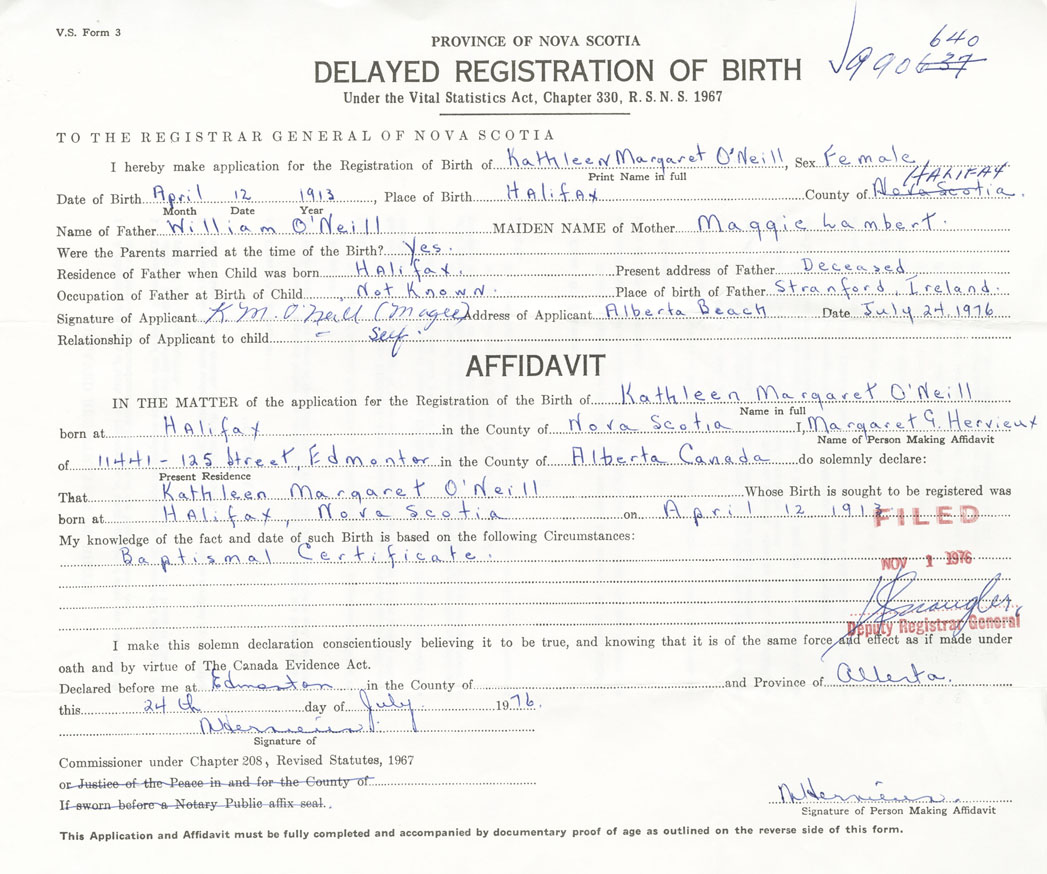 V.S. Form 3
PROVINCE OF NOVA SCOTIA
640
990637
DELAYED REGISTRATION OF BIRTH
Under the Vital Statistics Act, Chapter 330, R.S.N.S. 1967
TO THE REGISTRAR GENERAL OF NOVA SCOTIA
I hereby make application for the Registration of Birth of Kathleen Margaret O'Neill, Sex Female
Print Name in full
HALIFAX
Date of Birth April 12 1913, Place of Birth HAlifax County of Nova Scotia.
Month Date Year
Name of Father William O'Neill MAIDEN NAME of Mother Maggie Lambert.
Were the Parents married at the time of the Birth? Yes.
Residence of Father when Child was born HAlifax. Present address of Father Deceased
Occupation of Father at Birth of Child Not Known. Place of birth of Father Stranford, Ireland.
Signature of Applicant K.M. O'Neill (Magee) Address of Applicant Alberta Beach Date July 24, 1976
Relationship of Applicant to child - Self.
AFFIDAVIT
IN THE MATTER of the application for the Registration of the Birth of Kathleen Margaret O'Neill
Name in full
born at HAlifax in the County of Nova Scotia I, Margaret G. Hervieux
Name of Person Making Affidavit
of 11441-125 Street, Edmonton in the County of Alberta Canada do solemnly declare:
Present Residence
That Kathleen Margaret O'Neill Whose Birth is sought to be registered was
born at HAlifax, Nova Scotia on April 12 1913
FILED
My knowledge of the fact and date of such Birth is based on the following Circumstances:
Baptismal Certificate.
NOV 1 1976
Deputy Registrar General
I make this solemn declaration conscientiously believing it to be true, and knowing that it is of the same force and effect as if made under
oath and by virtue of The Canada Evidence Act.
Declared before me at Edmonton in the County of and Province of Alberta.
this 24th day of July 1976.
Signature of
Commissioner under Chapter 208, Revised Statutes, 1967
or Justice of the Peace in and for the County of
If sworn before a Notary Public affix seal.
Signature of Person Making Affidavit
This Application and Affidavit must be fully completed and accompanied by documentary proof of age as outlined on the reverse side of this form.